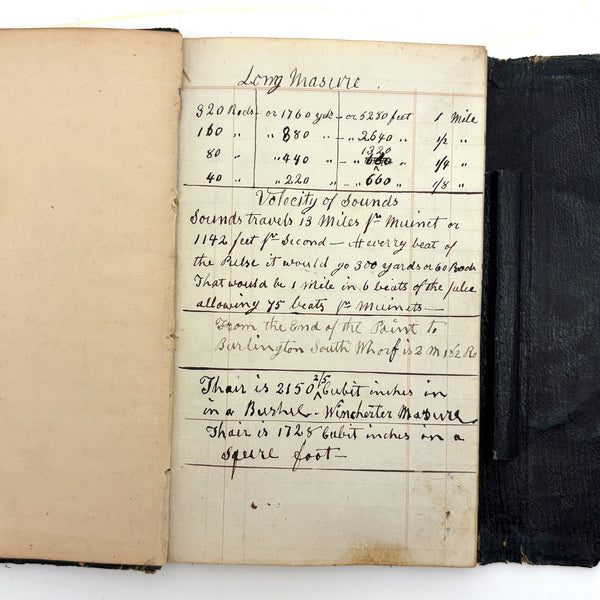 Long Masure.
320 Rods - or 1760 yds - or 5280 feet 1 Mile
160 " " 880 " - " 2640 " 1/2 "
80 " " 440 " - " 1320 " 1/4 "
40 " " 220 " - " 660 " 1/8 "
Velocity of Sounds
Sounds travels 13 Miles pr Muinet or
1142 feet pr Second - At everry beat of
the Pulse it would go 300 yards or 60 Roods
That would be 1 Mile in 6 beats of the pulce
allowing 75 beats pr Muinets -
From the End of the Point to
Burlington South Whorf is 2 M 182 Ro
Thair is 2150 2/5 Cubit inches in
in a Bushel - Winchester Masure
Thair is 1728 Cubit inches in a
Squere foot -